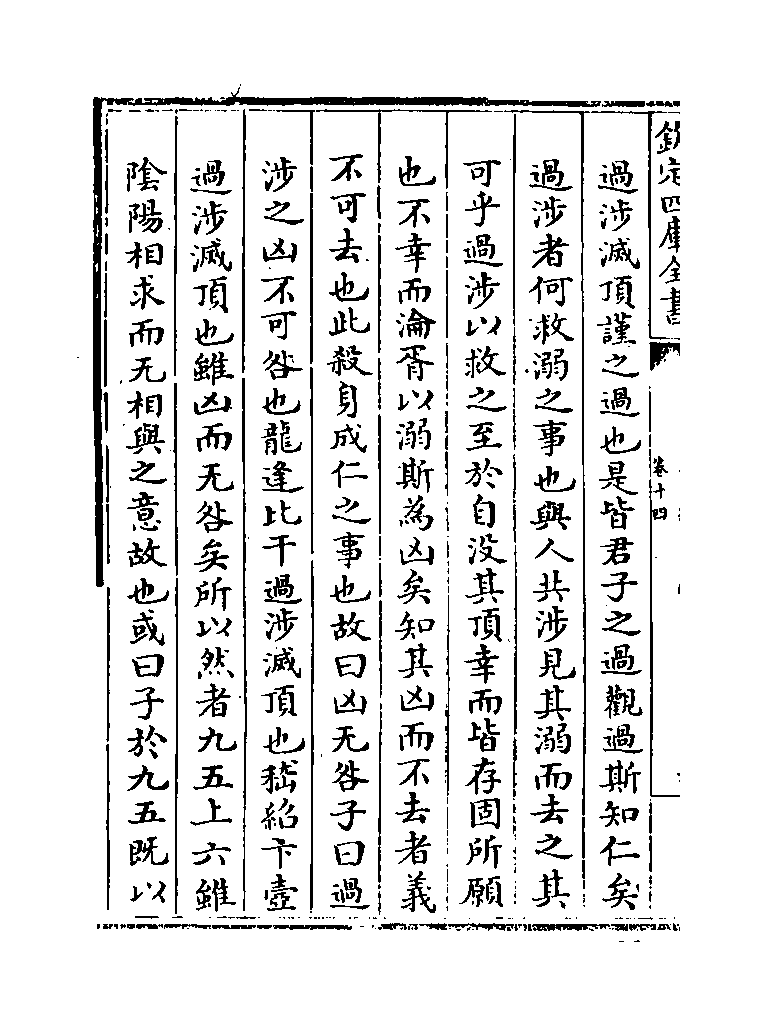 欽定四庫全書
卷十四
過涉滅頂謹之過也是皆君子之過觀過斯知仁矣
過涉者何救溺之事也與人共涉見其溺而去之其
可乎過涉以救之至於自没其頂幸而皆存固所願
也不幸而淪胥以溺斯為凶矣知其凶而不去者義
不可去也此殺身成仁之事也故曰凶无咎子曰過
涉之凶不可咎也龍逢比干過涉滅頂也嵇紹卞壼
過涉滅頂也雖凶而无咎矣所以然者九五上六雖
陰陽相求而无相與之意故也或曰子於九五既以